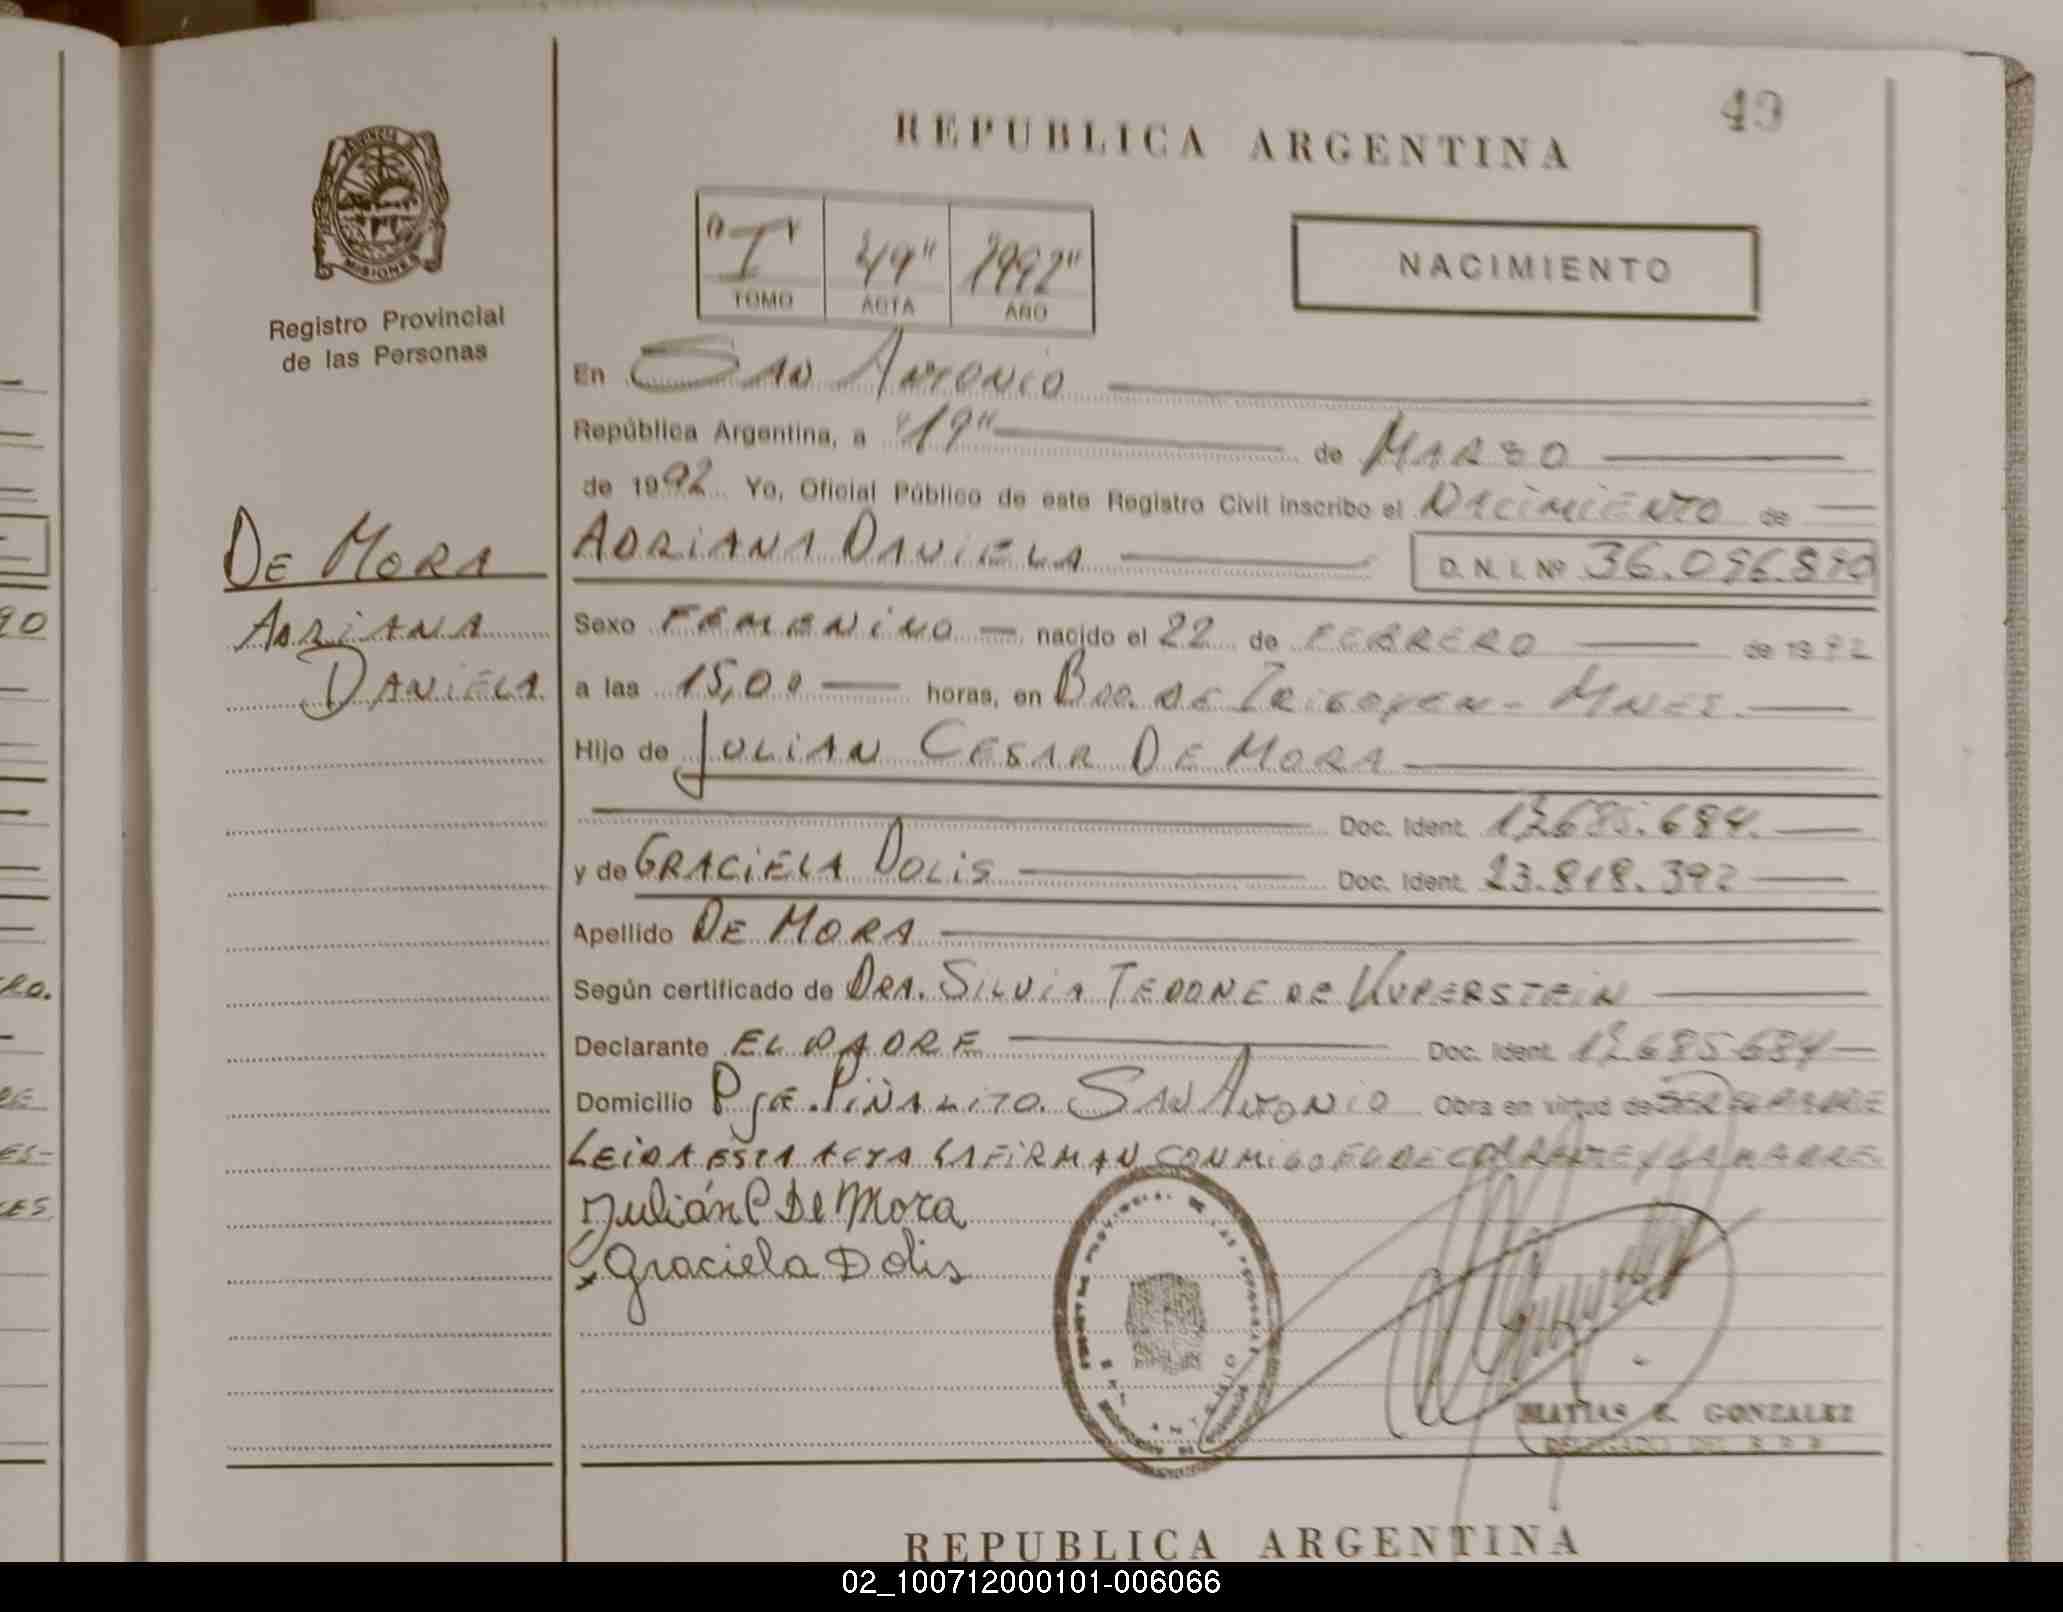 49
REPUBLICA ARGENTINA
PROVINCIA DE
MISIONES
Registro Provincial
de las Personas
"I" "49" "1992"
TOMO ACTA AÑO
NACIMIENTO
En SAN ANTONIO
República Argentina, a "19" de MARZO
de 1992 Yo, Oficial Público de este Registro Civil inscribo el NACIMIENTO de
DE MORA
ADRIANA DANIELA
ADRIANA DANIELA D. N. I. Nº 36.096.890
Sexo FEMENINO nacido el 22 de FEBRERO de 1992
a las 15,00 horas, en BDO. DE IRIGOYEN - MNES.
Hijo de JULIAN CESAR DE MORA
Doc. Ident. 12.685.684.
y de GRACIELA DOLIS Doc. Ident. 23.818.392
Apellido DE MORA
Según certificado de DRA. SILVIA TEDONE DE KUPERSTEIN
Declarante EL PADRE Doc. Ident. 12.685.684
Domicilio PJE. PIÑALITO. SAN ANTONIO Obra en virtud de SER SU PADRE
LEIDA ESTA ACTA LA FIRMAN CONMIGO EL DECLARANTE Y LA MADRE.
Julián C De Mora
Graciela Dolis
MATIAS E. GONZALEZ
DELEGADO DEL R P P
REPUBLICA ARGENTINA
02_100712000101-006066